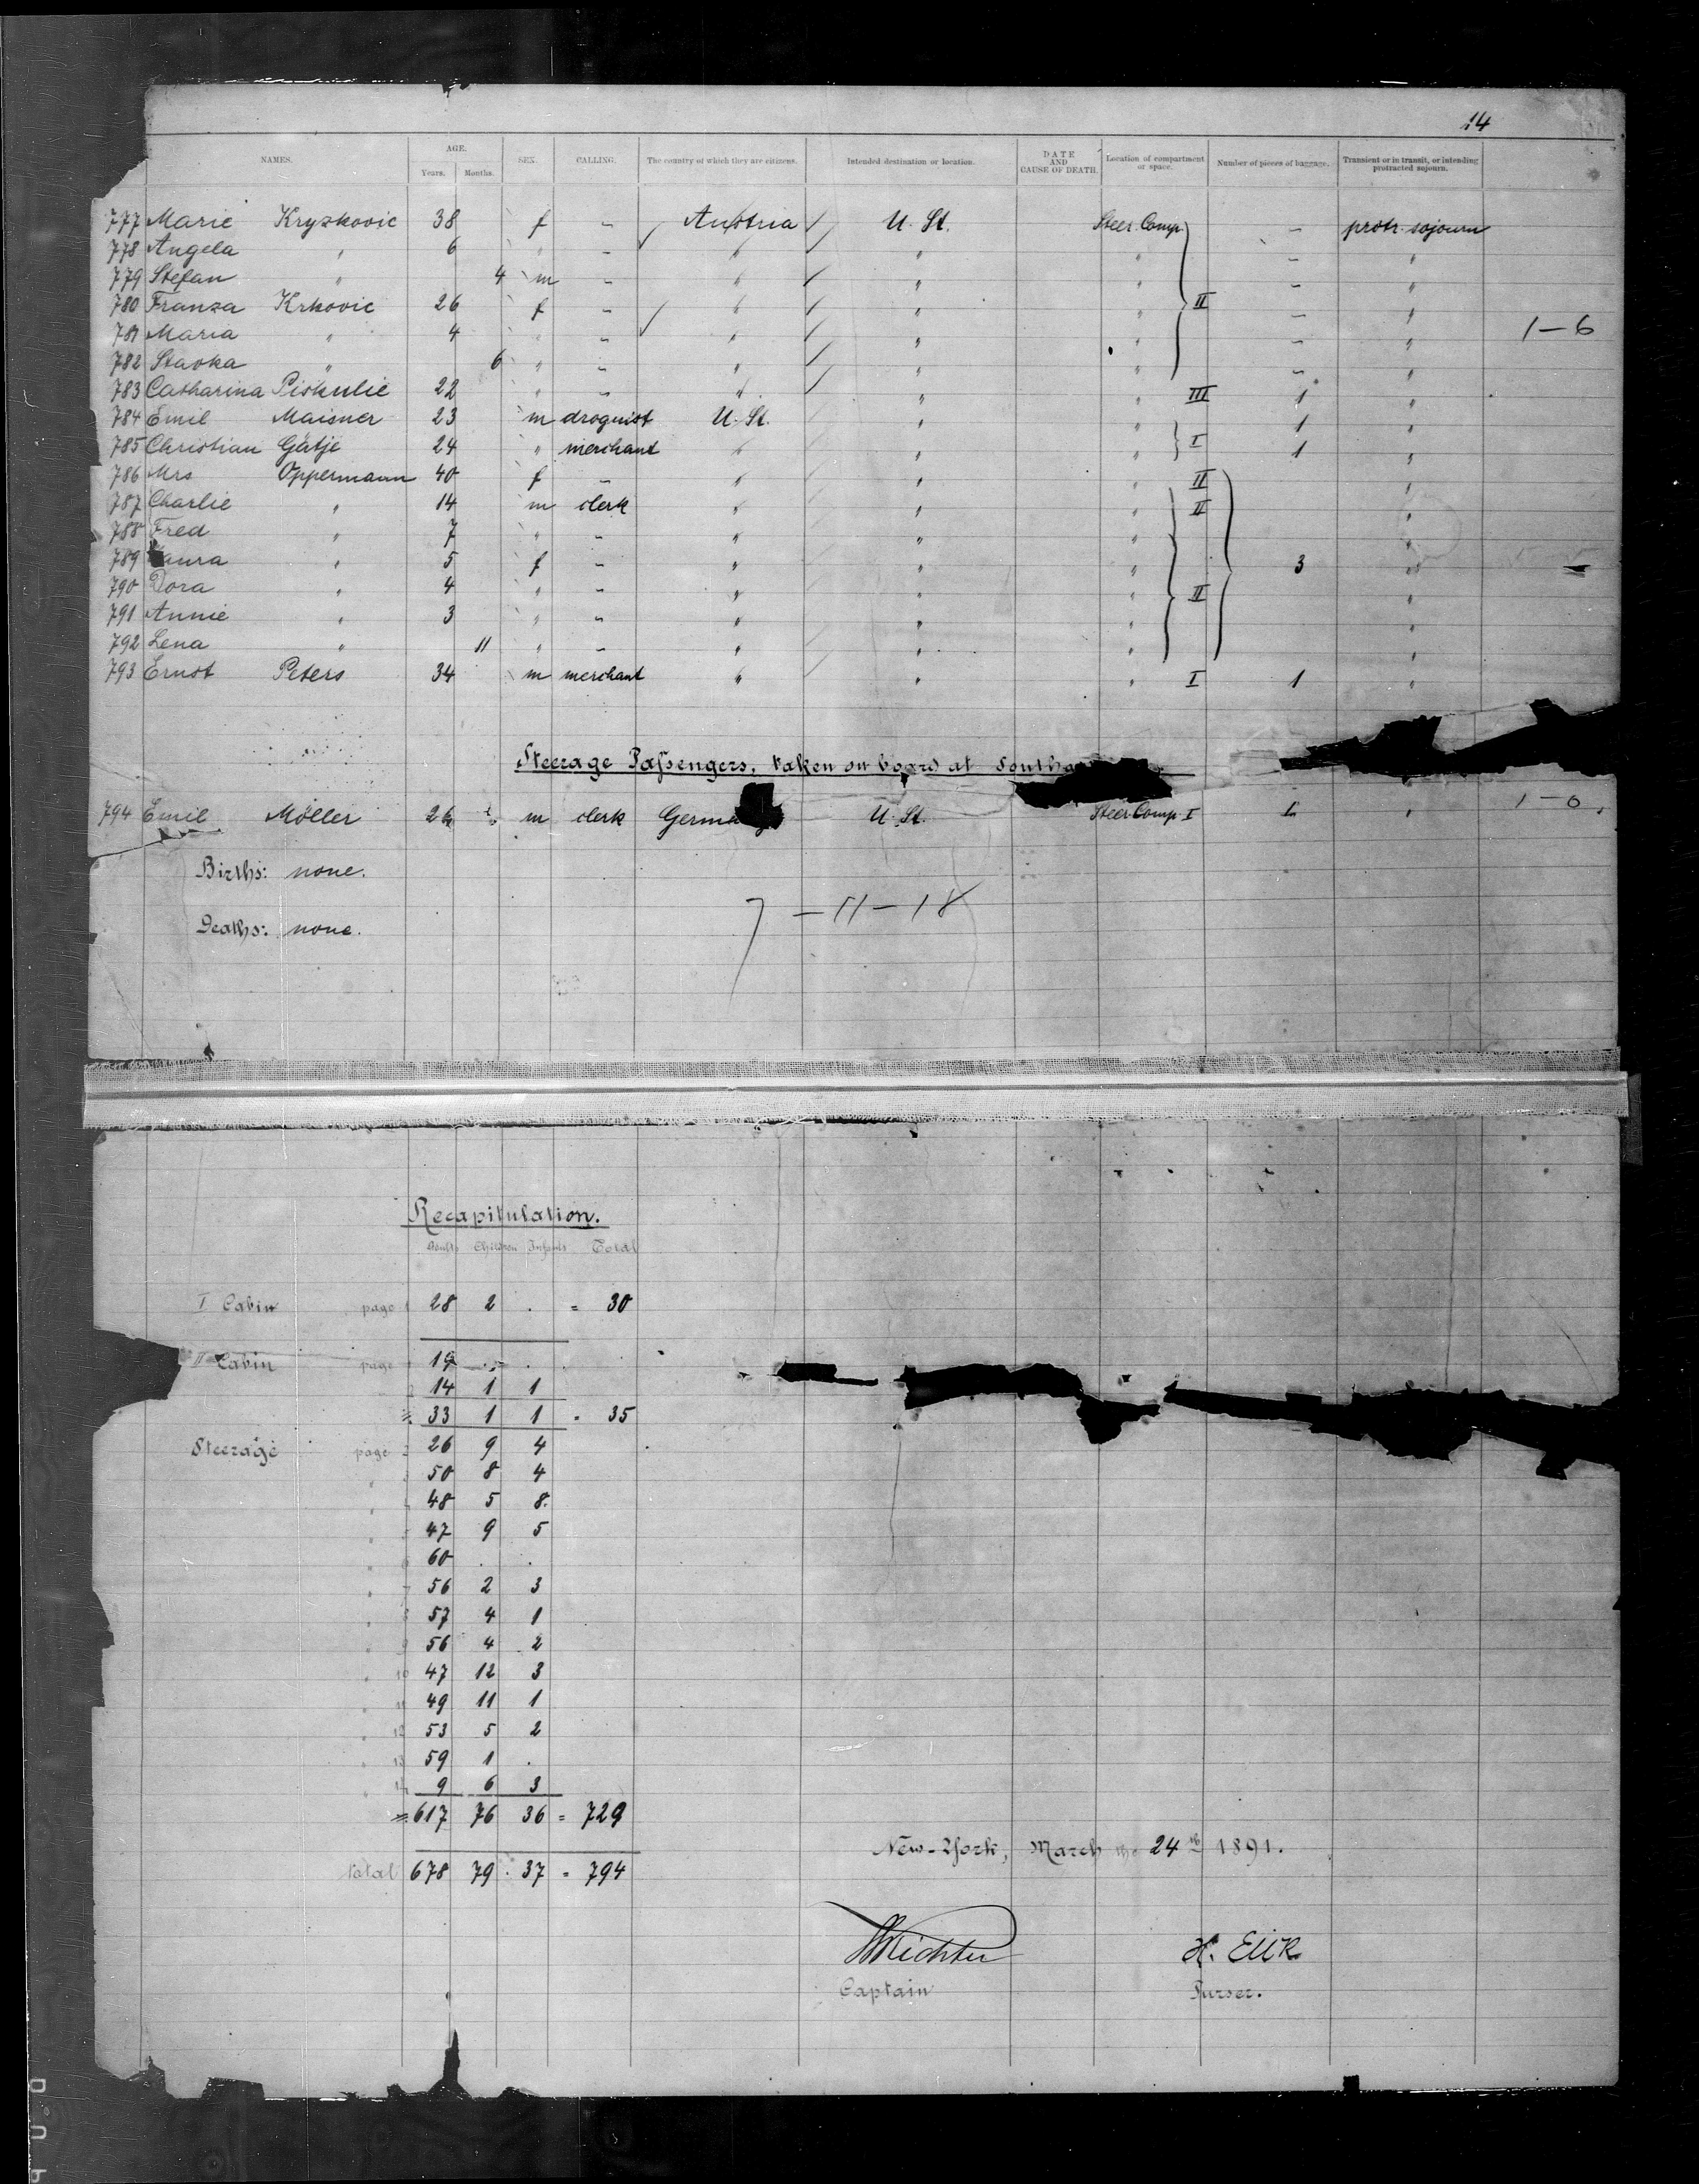 14
NAMES. AGE. Years. Months. SEX. CALLING. The country of which they are citizens. Intended destination or location. DATE AND CAUSE OF DEATH. Location of compartment or space. Number of pieces of baggage. Transient or in transit, or intending protracted sojourn.
777 Marie Kryzkovic 38 f - Austria U. St. Steer. Comp. - protr. sojourn
778 Angela " 6 " - " " " - "
779 Stefan " 4 m - " " " - "
780 Franza Krkovic 26 f - " " " II - "
781 Maria " 4 " - " " " - " 1-6
782 Slavka " 6 " - " " " - "
783 Catharina Piskulic 22 " - " " " III 1 "
784 Emil Maisner 23 m droguist U. St. " " 1 "
785 Christian Gätje 24 " merchant " " " I 1 "
786 Mrs Oppermann 40 f - " " " II "
787 Charlie " 14 m clerk " " " II "
788 Fred " 7 " - " " " "
789 aura " 5 f - " " " 3 "
790 Dora " 4 " - " " " II "
791 Annie " 3 " - " " " "
792 Lena " 11 " - " " " "
793 Ernst Peters 34 m merchant " " " I 1 "
Steerage Passengers, taken on board at Southa
794 Emil Möller 26 m clerk Germa U. St. Steer. Comp. I 1 "
Births: none.
Deaths: none.
7 - 11 - 18
Recapitulation.
Adults Children Infants Total
I Cabin page 1 28 2 . = 30
II Cabin page 19 . .
14 1 1
= 33 1 1 = 35
Steerage page 2 26 9 4
" 50 8 4
" 48 5 8
" 47 9 5
" 6 60 . .
" 7 56 2 3
" 8 57 4 1
" 9 56 4 2
" 10 47 12 3
" 11 49 11 1
" 12 53 5 2
" 13 59 1 .
" 14 9 6 3
= 617 76 36 = 729
total 678 79 37 = 794
New-York, March the 24th 1891.
Richter H. Eük
Captain Purser.